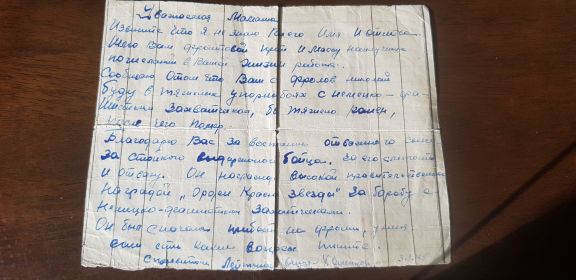 Уважаемая Мамаша
Извените что я не знаю Вшего Имя и отчиства.
Шлю Вам фронтовой привет и массу наилучших
пожеланий в Вашей жизни работе.
Сообщаю о том что Ваш с Фролов Николай
буду в тяжелых упорных боях с немецко-фа-
шистским захватчикой, бы тяжело ранен,
после чего помер.
Благодарю Вас за воспитание отважного сына
за стойкого выдержаного бойца. За его смелость
и отвагу. Он награжден высокой правительственой
наградой „Орден Красн Звезды" за борьбу с
немецко-фашистким захватчиками.
Он был сначала на фронт, у меня
если есть какие вопросы пишите.
С приветом Лейтенант